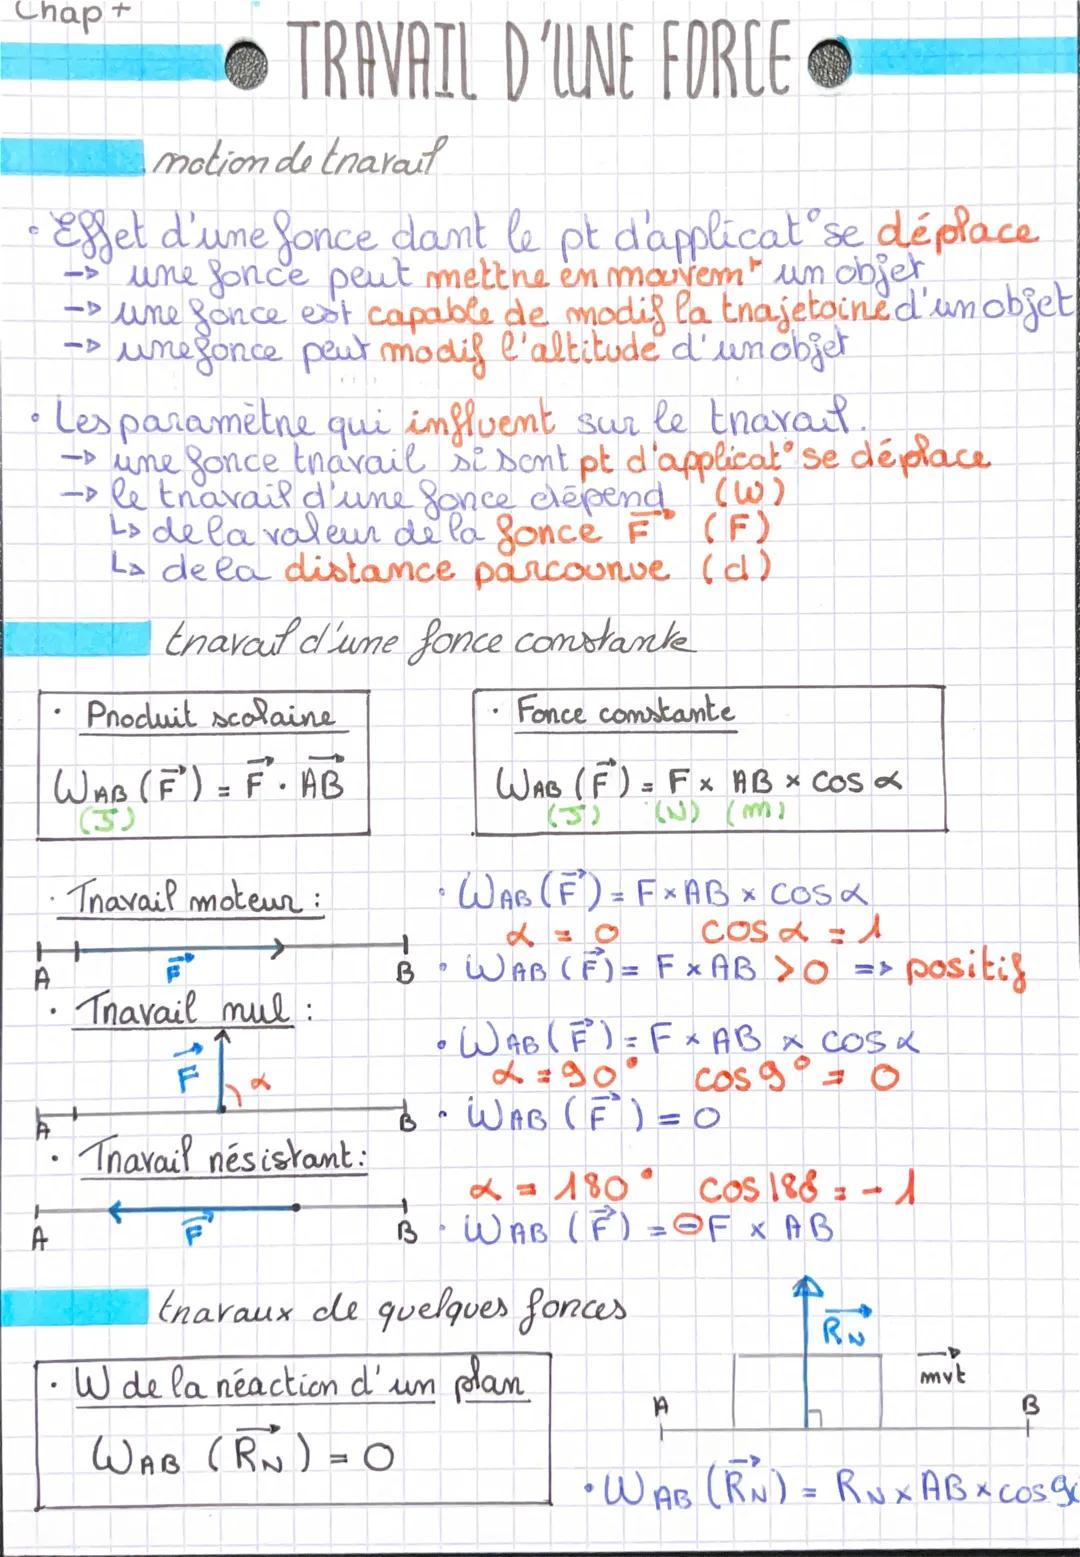 Chap +
TRAVAIL D'UNE FORCE
notion de travail
• Effet d'une force dont le pt d'applicat° se déplace
-> une force peut mettre en mouvemt un objet
-> une force est capable de modif la trajetoire d'un objet
-> une force peut modif l'altitude d'un objet
• Les paramètre qui influent sur le travail.
-> une force travail si sont pt d'applicat° se déplace
-> le travail d'une force dépend (W)
↳ de la valeur de la force F⃗ (F)
↳ de la distance parcourue (d)
travail d'une force constante
• Produit scolaire
W_AB (F⃗) = F⃗ · AB⃗
(J)
• Force constante
W_AB (F⃗) = F x AB x cos α
(J) (N) (m)
• Travail moteur :
A F⃗ B
• W_AB (F⃗) = F x AB x cos α
α = 0 cos α = 1
• W_AB (F⃗) = F x AB > 0 => positif
• Travail nul :
F⃗ α
A B
• W_AB (F⃗) = F x AB x cos α
α = 90° cos 9° = 0
• W_AB (F⃗) = 0
• Travail résistant :
A F⃗ B
α = 180° cos 188 = - 1
• W_AB (F⃗) = - F x AB
travaux de quelques forces
• W de la réaction d'un plan
W_AB (R_N⃗) = 0
R_N⃗
mvt
A B
• W_AB (R_N⃗) = R_N x AB x cos 90